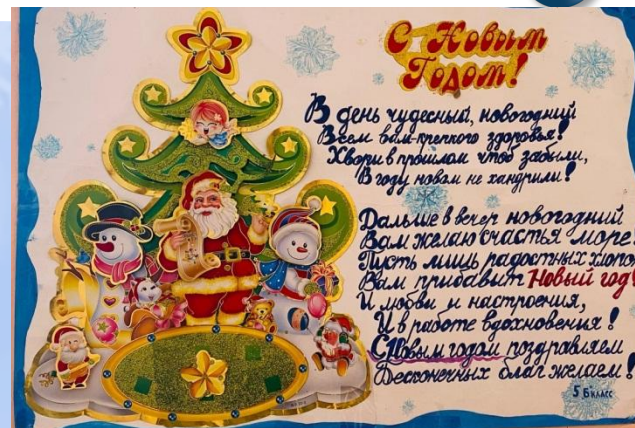 С Новым
Годом!
В день чудесный, новогодний
Всем вам-крепкого здоровья!
Хвори в прошлом чтоб забыли,
В году новом не хандрили!
Дальше в вечер новогодний
Вам желаю счастья море
Пусть лишь радостных хлопо
Вам прибавит Новый год!
И любви и настроения,
И в работе вдохновения!
С Новым годом поздравляем
Бесконечных благ желаем!
5 Б класс